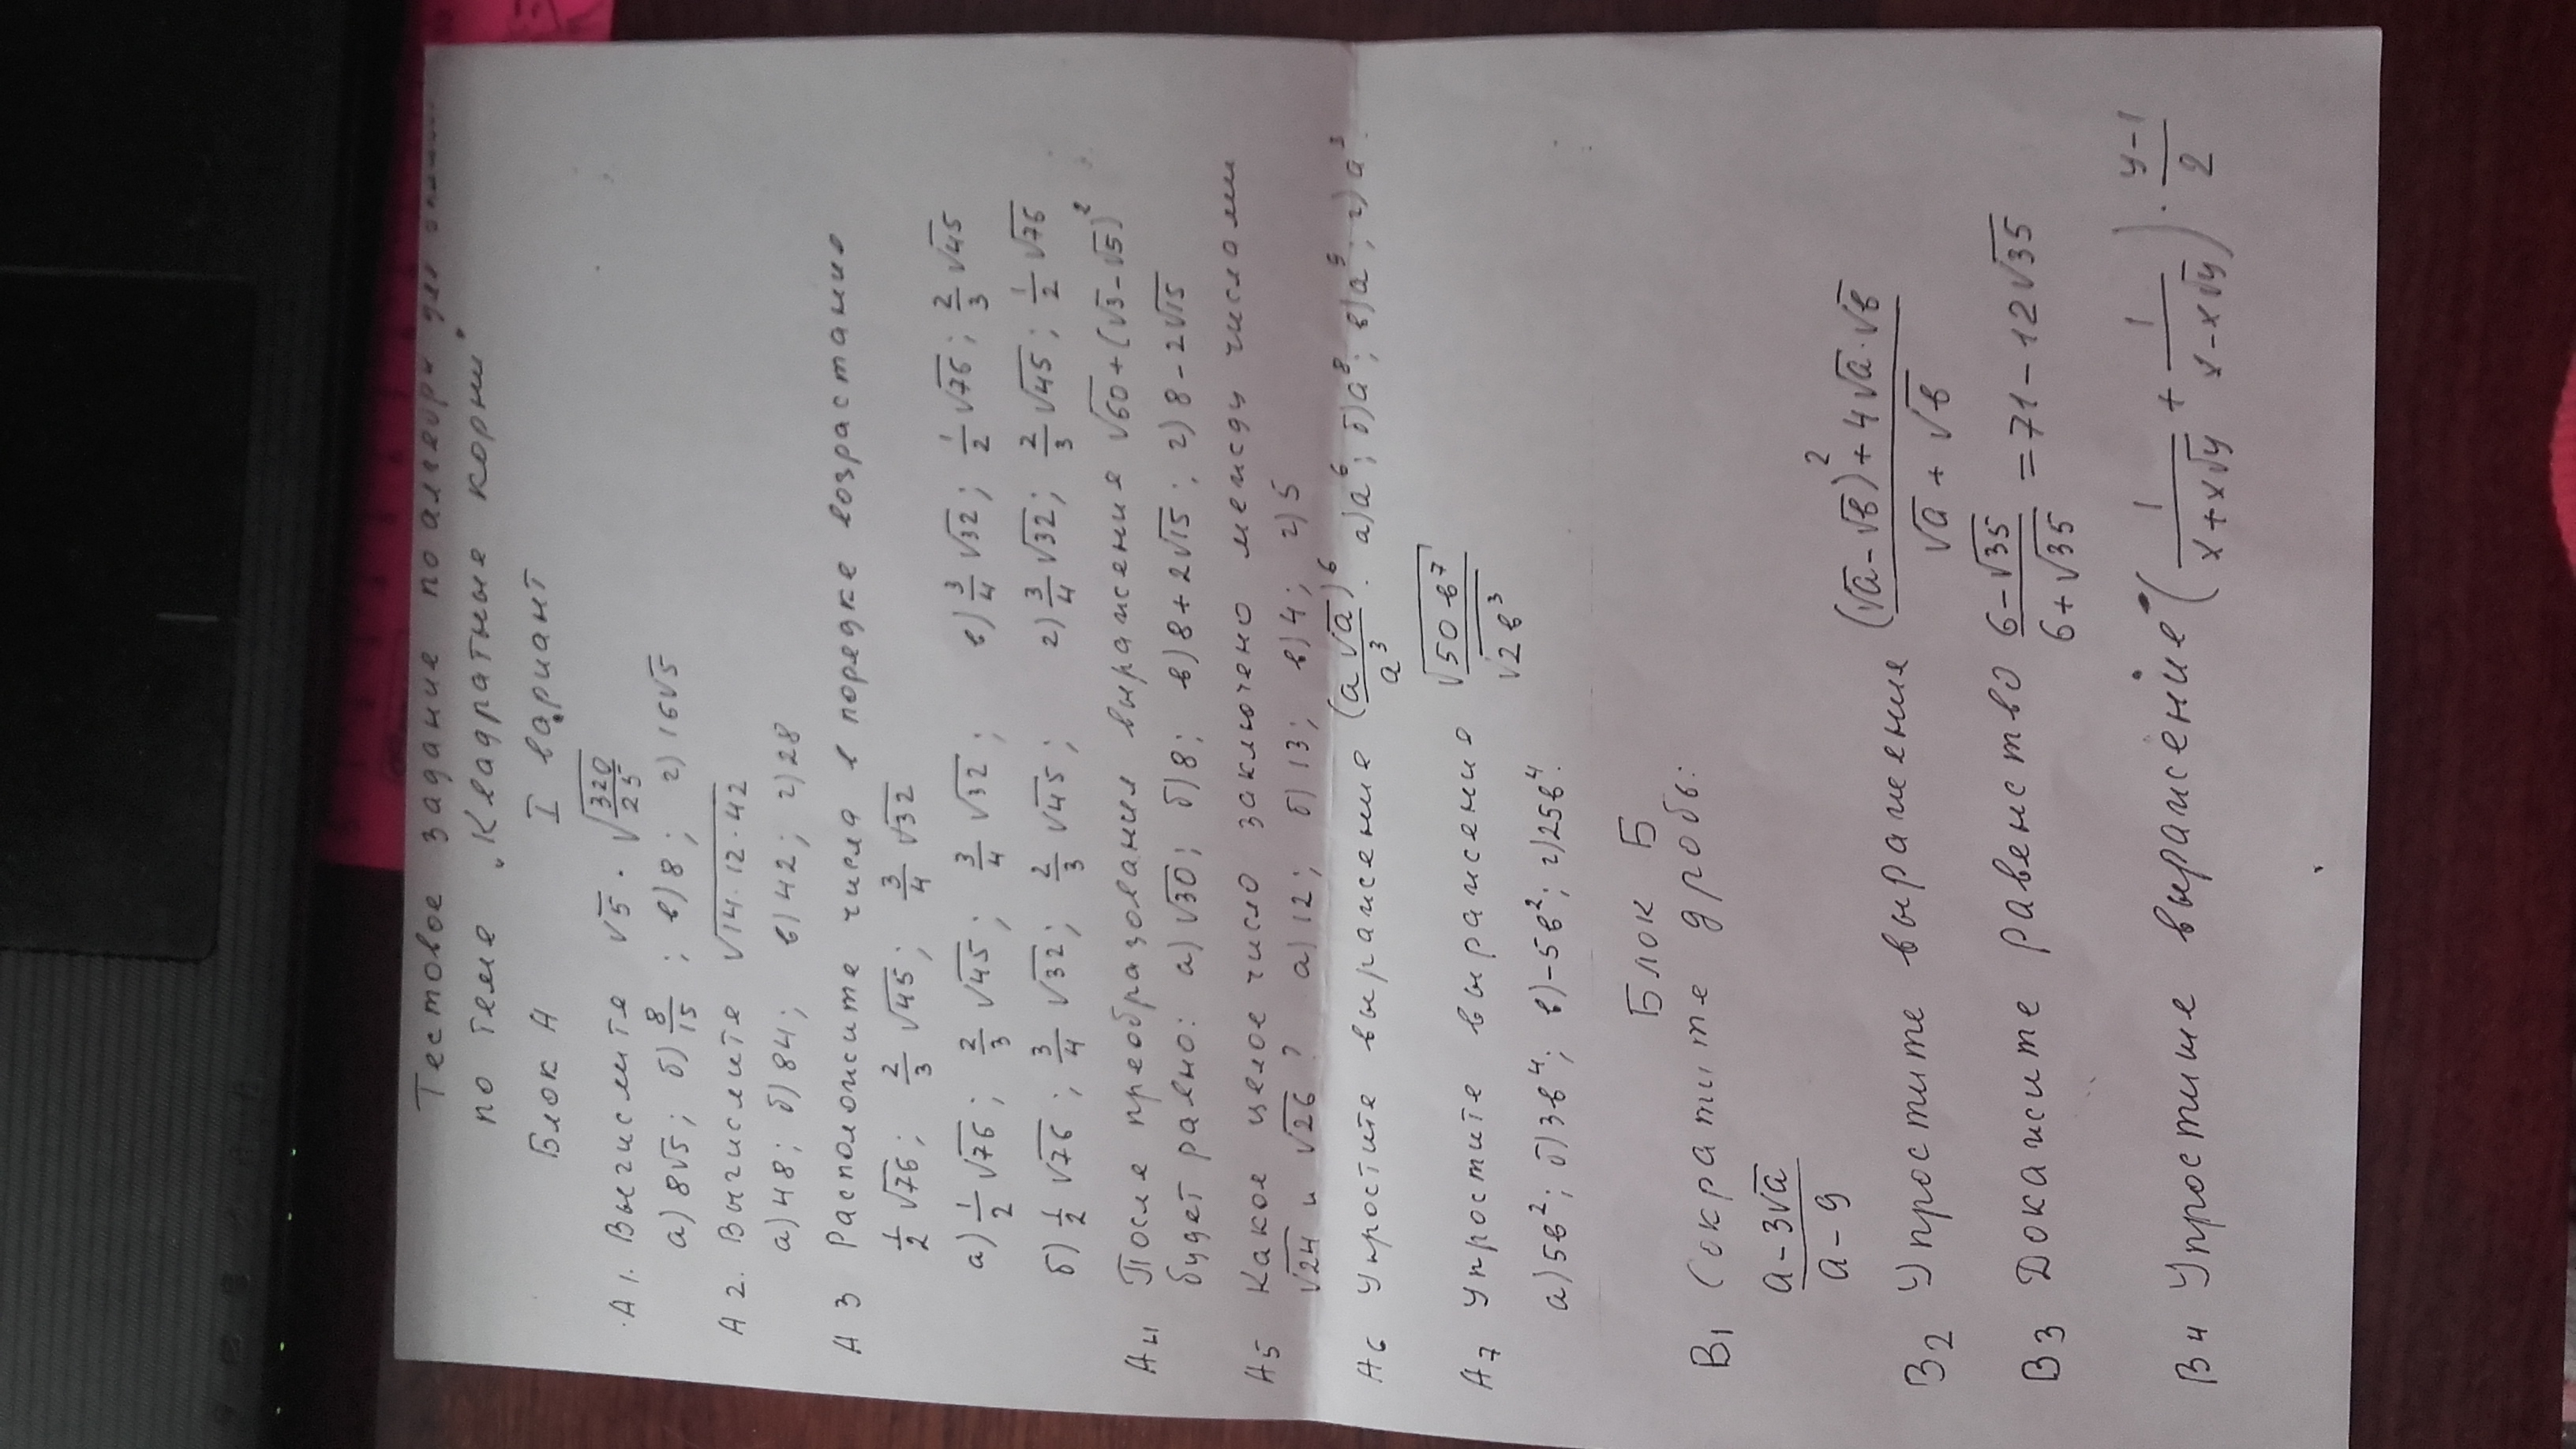 Тестовое задание по алгебре для
по теме „Квадратные корни"
Блок А I вариант
А1. Вычислите √5 · √(320/25)
а) 8√5; б) 8/15; в) 8; г) 16√5
А2. Вычислите √(14·12·42)
а) 48; б) 84; в) 42; г) 28
А3 Расположите числа в порядке возрастания
1/2 √76; 2/3 √45; 3/4 √32
а) 1/2 √76; 2/3 √45; 3/4 √32; в) 3/4 √32; 1/2 √76; 2/3 √45
б) 1/2 √76; 3/4 √32; 2/3 √45; г) 3/4 √32; 2/3 √45; 1/2 √76
А4 После преобразования выражения √60 + (√3 - √5)²
будет равно: а) √30; б) 8; в) 8 + 2√15; г) 8 - 2√15
А5 Какое целое число заключено между числами
√24 и √26? а) 12; б) 13; в) 4; г) 5
А6 Упростите выражение (a√a/a³)⁶. а) a⁶; б) a⁸; в) a⁹; г) a³.
А7 Упростите выражение √(50в⁷)/√(2в³)
а) 5в²; б) 3в⁴; в) -5в²; г) 25в⁴.
Блок Б
В1 Сократите дробь:
(a - 3√a)/(a - 9)
В2 Упростите выражение ((√a - √в)² + 4√a·√в)/(√a + √в)
В3 Докажите равенство (6 - √35)/(6 + √35) = 71 - 12√35
В4 Упростите выражение (1/(x + x√y) + 1/(x - x√y)) · (y - 1)/2